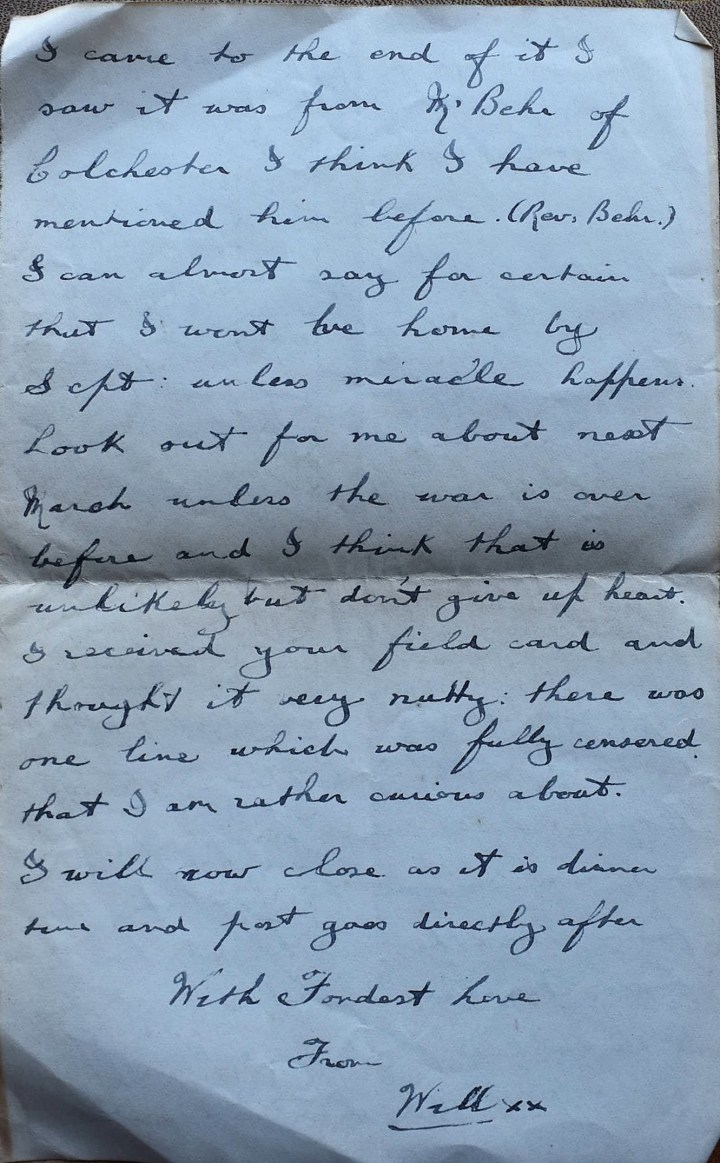 I came to the end of it I
saw it was from Mr Behr of
Colchester I think I have
mentioned him before. (Rev. Behr.)
I can almost say for certain
that I wont be home by
Sept: unless miracle happens.
Look out for me about next
March unless the war is over
before and I think that is
unlikely but don't give up heart.
I received your field card and
thought it very nutty: there was
one line which was fully censered
that I am rather curious about.
I will now close as it is dinner
time and post goes directly after
With Fondest Love
From
Will xx